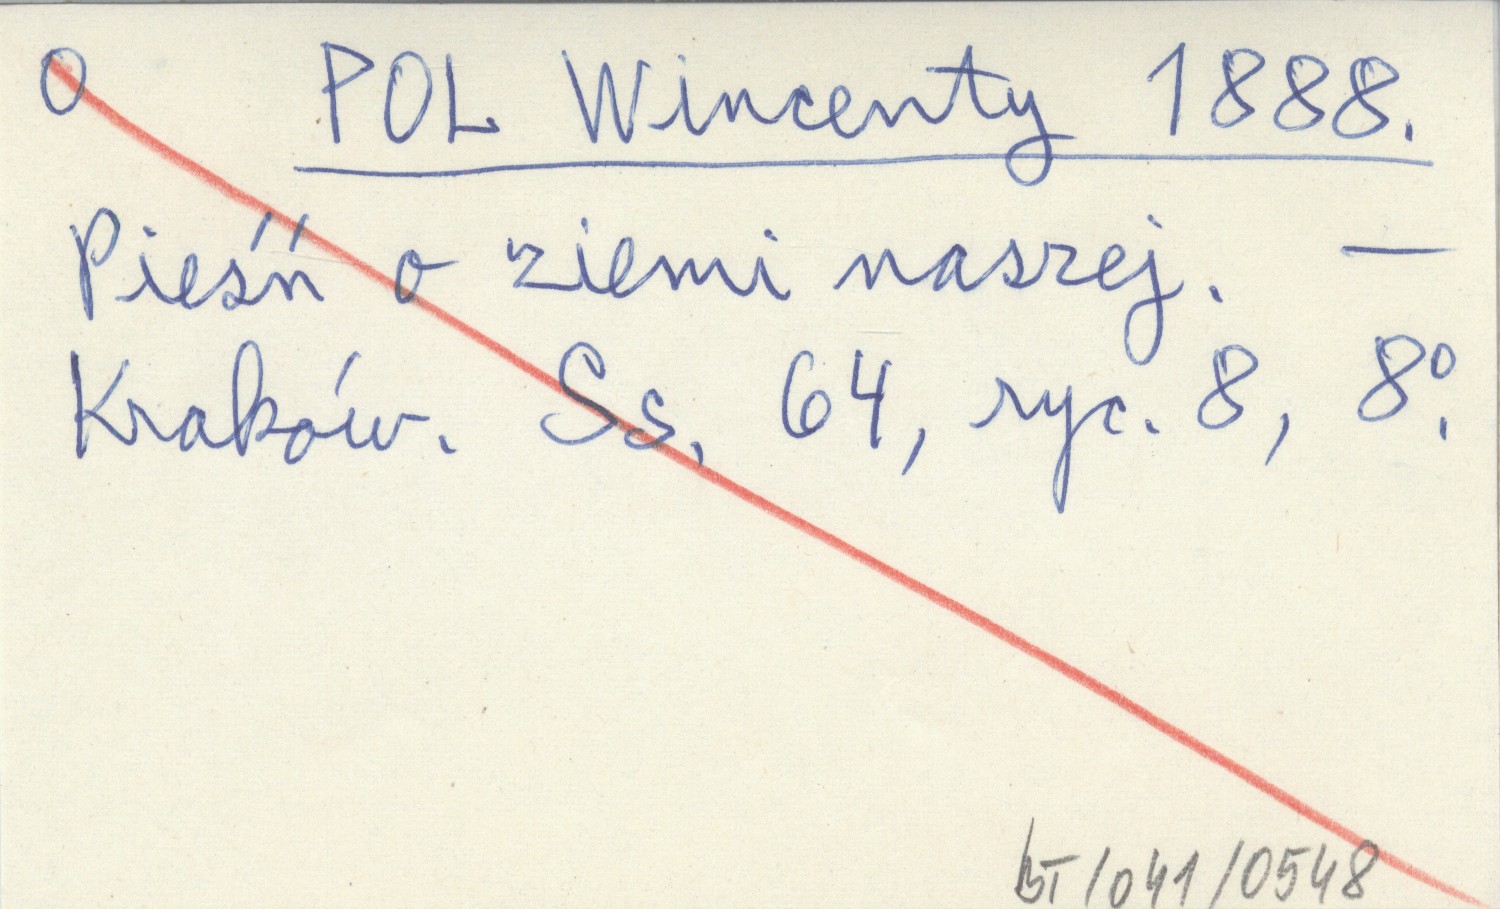 O POL Wincenty 1888.
Pieśń o ziemi naszej. —
Kraków. Ss, 64, ryc. 8, 8°.
BT/041/0548